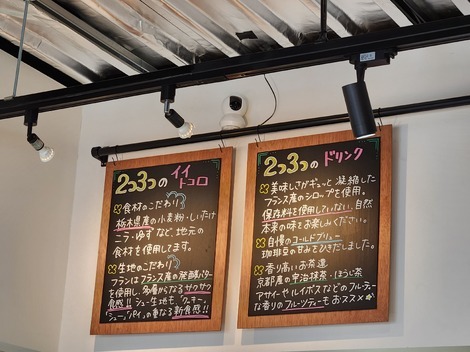 2つ3つの イイトコロ
食材のこだわり
栃木県産の小麦粉・しいたけ
ニラ・ゆずなど、地元の
食材を使用してます。
生地のこだわり
フランはフランス産の発酵バター
を使用し、多層からなるサクサク
食感!!シュー生地も、クッキー、
シュー、パイの重なる新食感!!
2つ3つの ドリンク
美味しさがギュッと凝縮した
フランス産のシロップを使用。
保存料を使用していない、自然
本来の味をお楽しみください。
自慢のコールドブリュー
珈琲豆の甘みをひきだしました。
香り高いお茶達
京都産の宇治抹茶・ほうじ茶
アサイーやルイボスなどのフルーティー
な香りのフルーツティーもおススメ